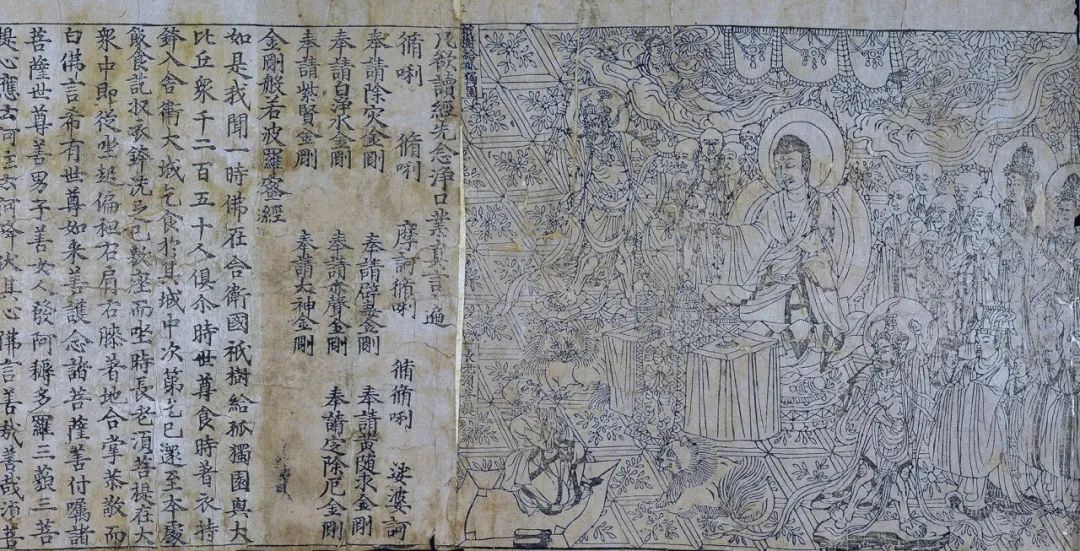 祇樹給孤獨園
長老須菩提
凡欲讀經先念淨口業真言 遍
脩唎 脩唎 摩訶脩唎 脩脩唎 娑婆訶
奉請除災金剛 奉請辟毒金剛 奉請黃隨求金剛
奉請白淨水金剛 奉請赤聲金剛 奉請定除厄金剛
奉請紫賢金剛 奉請大神金剛
金剛般若波羅蜜經
如是我聞一時佛在舍衛國祇樹給孤獨園與大
比丘衆千二百五十人俱尒時世尊食時著衣持
鉢入舍衛大城乞食於其城中次第乞已還至本處
飯食訖収衣鉢洗足已敷座而坐時長老須菩提在大
衆中即從坐起偏袒右肩右膝著地合掌恭敬而
白佛言希有世尊如来善護念諸菩薩善付囑諸
菩薩世尊善男子善女人發阿耨多羅三藐三菩
提心應云何住云何降伏其心佛言善哉善哉須菩